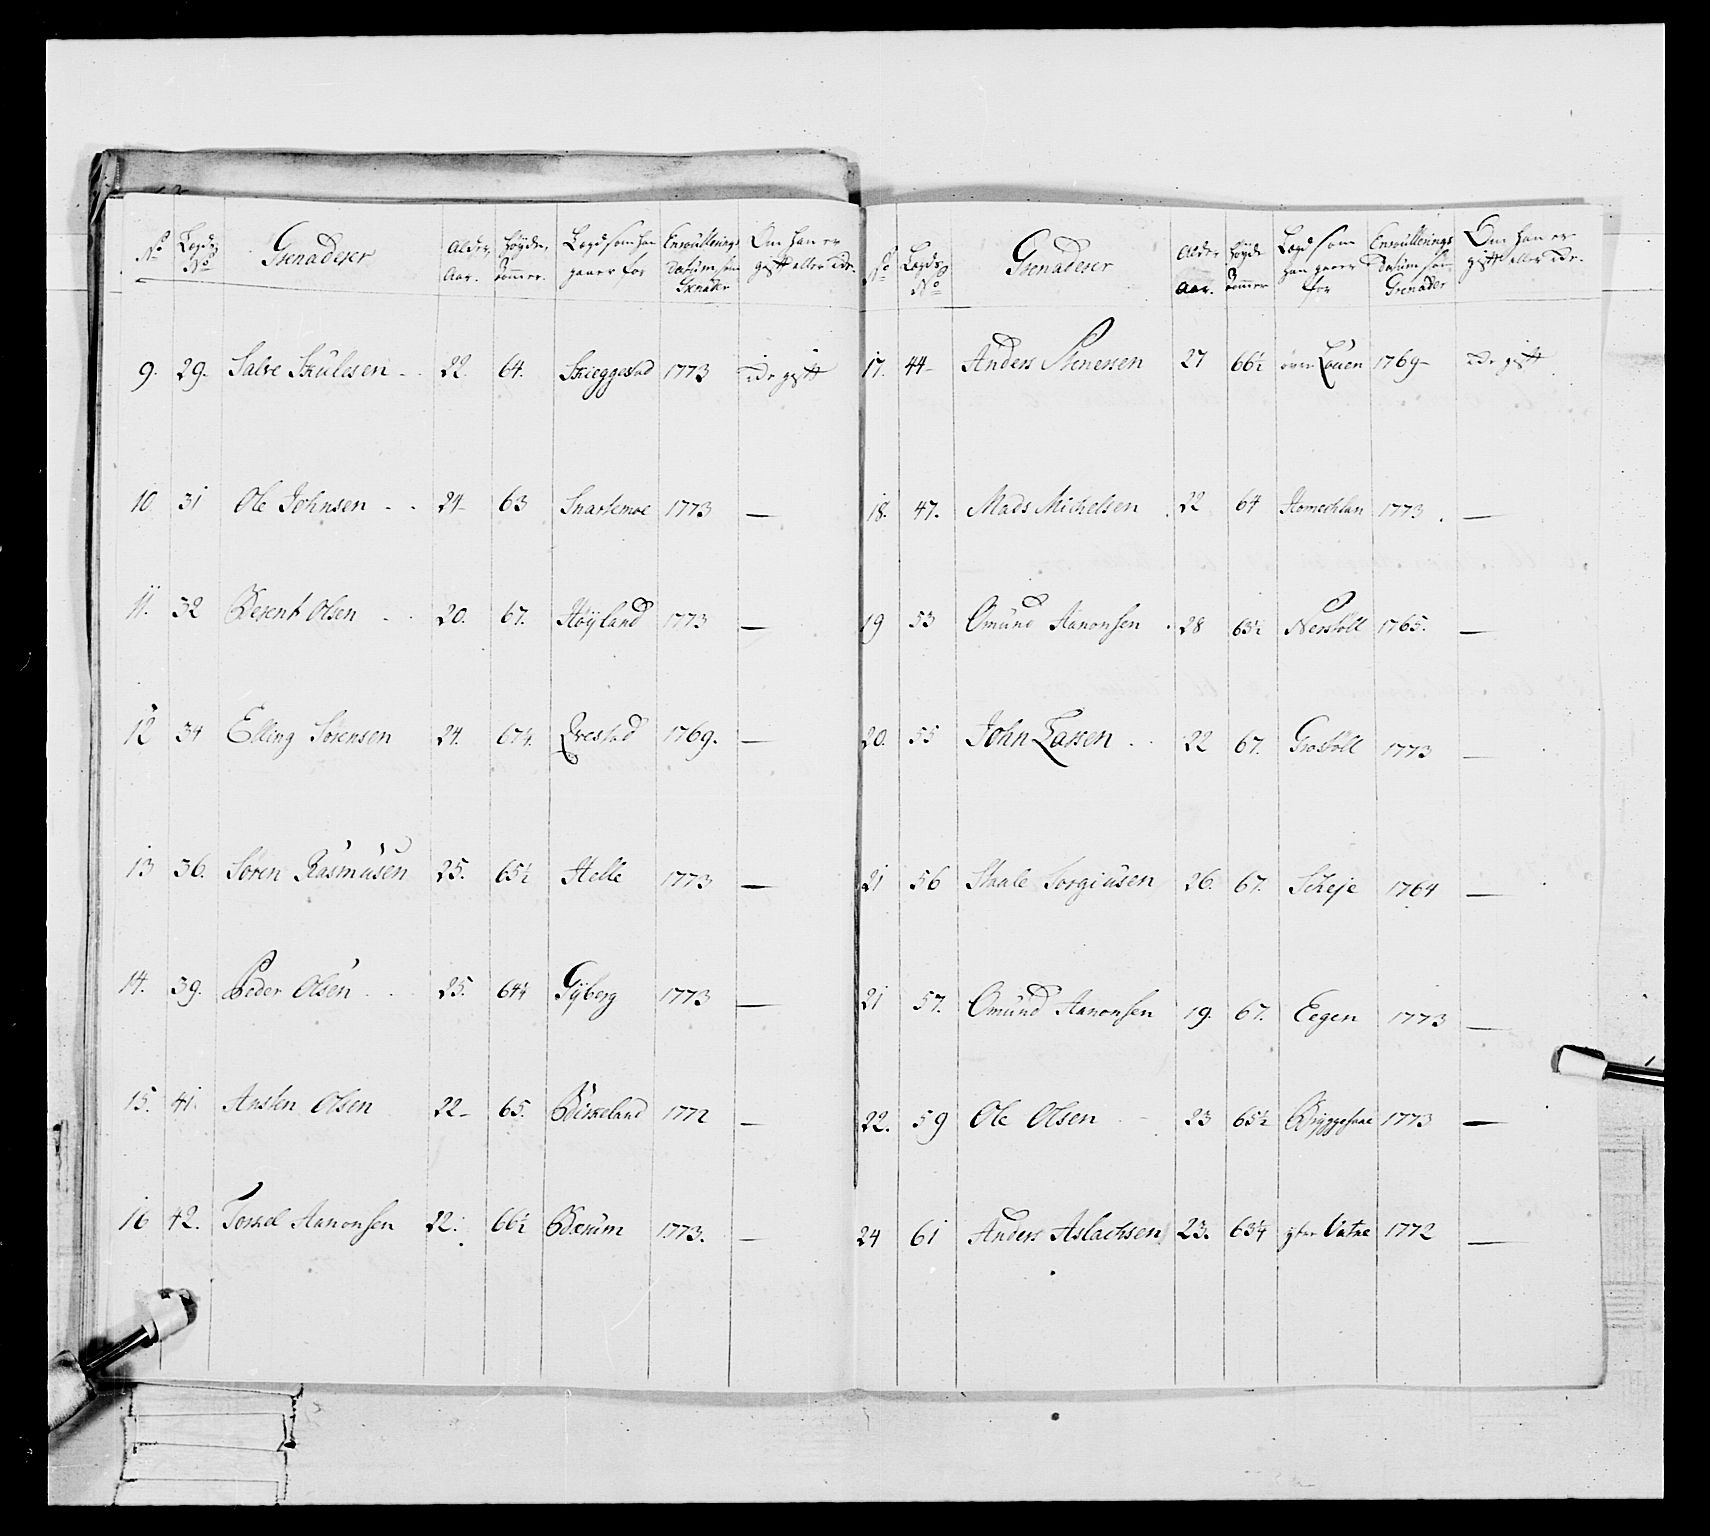 No Lægds No Grenaderer Alder Aar. Høyde tommer. Lægd som han giver for Enroullerings Datum som Grenader Om han er gift eller Ide.
9. 29. Salve Skulesen 22. 64. Skieggestad 1773 ide gift
10. 31 Ole Johnsen 24 63 Snartemoe 1773 —
11. 32 Berent Olsen 20. 67. Høyland 1773 —
12 34 Elling Sørensen 24. 67¼. Qvestad 1769. —
13 36. Søren Rasmusen 25. 65½ Helle 1773 —
14. 39. Peder Olsen 25. 64¼ Gyberg 1773 —
15. 41. Ansten Olsen 22 65. Birkeland 1772 —
16 42. Torkel Aanonsen 22. 66½ Bærum 1773. —
No Lægds No Grenaderer Alder Aar. Høyde tommer Lægd som han giver for Enroullerings Datum som Grenader Om han er gift eller Ide.
17. 44 Anders Stenersen 27 66½ øvre Løuen 1769 ide gift
18. 47. Mads Michelsen 22 64 Homechlan 1773. —
19 53 Omund Aanonsen 28 63½ Nerstøll 1765. —
20. 55 John Lassen 22 67. Grostøll 1773 —
21 56 Staale Torgiusen 26. 67. Scheje 1764 —
21 57. Omund Aanonsen 19. 67. Eegen 1773 —
22. 59 Ole Olsen 23 65½ Bryggesaae 1773 —
24 61 Anders Aslachsen 23. 63¼ Vatne 1772 —